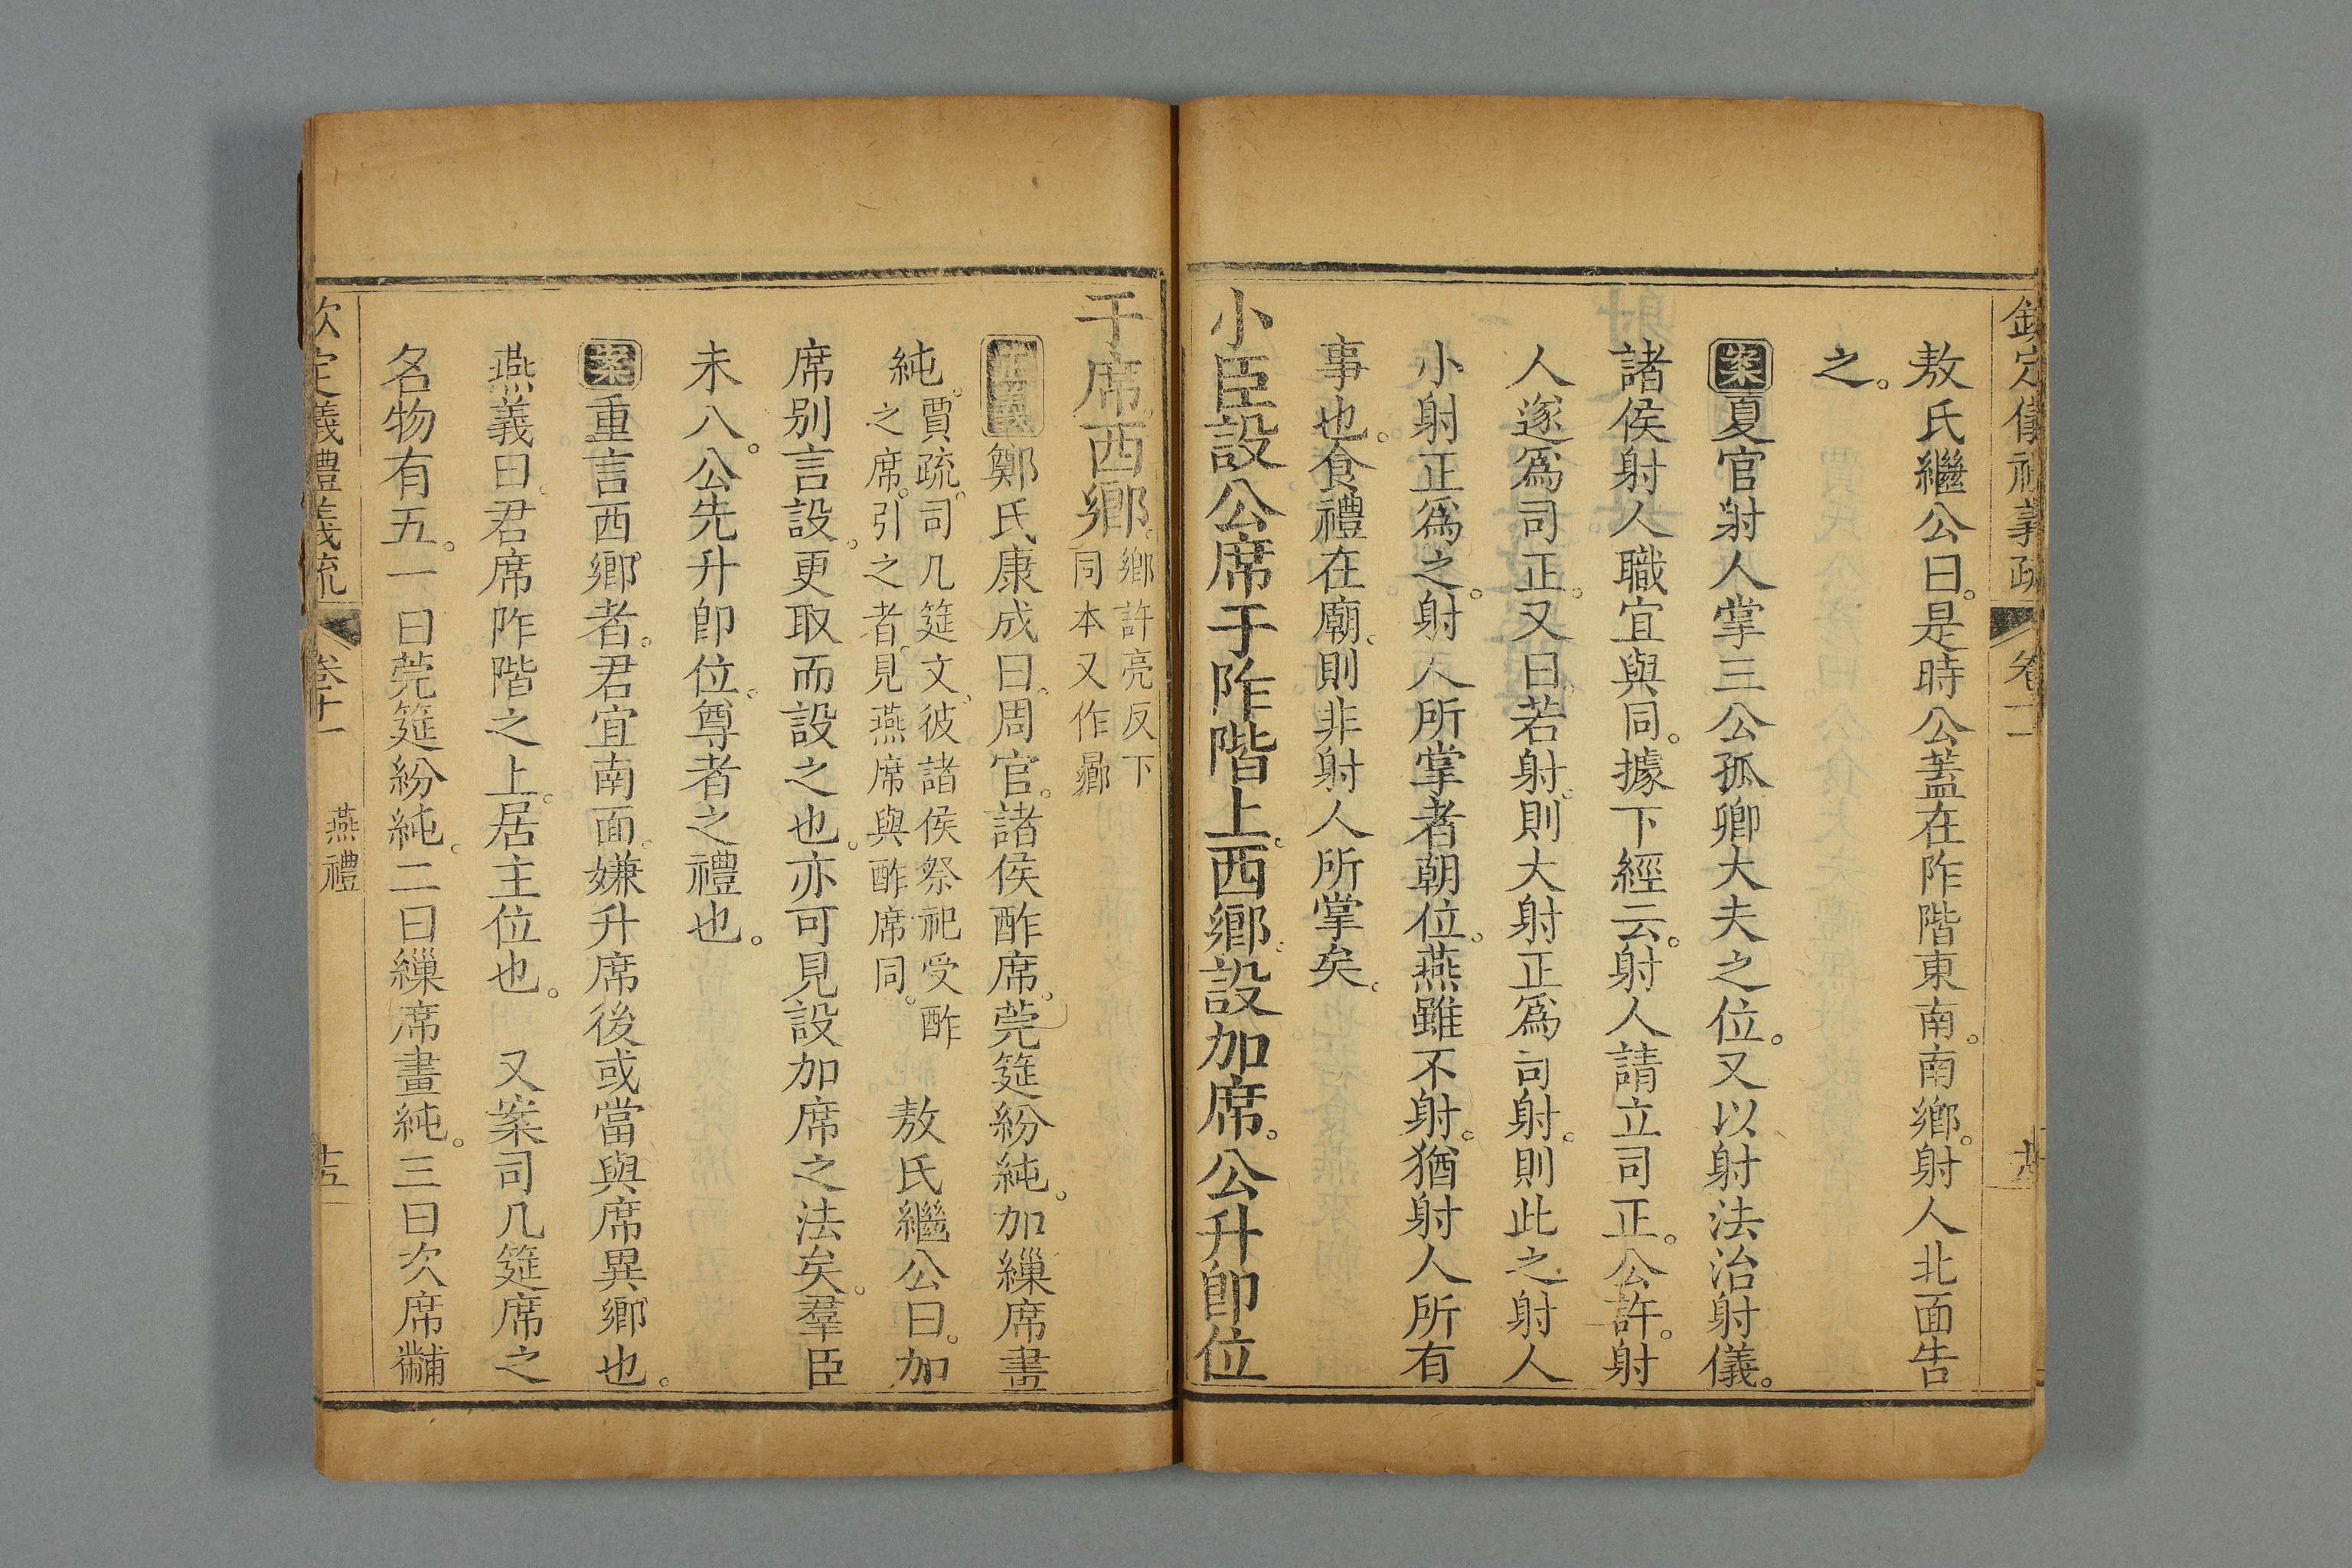 欽定儀禮義疏 卷十一
敖氏繼公曰是時公蓋在阼階東南南鄉射人北面告
之。
案夏官射人掌三公孤卿大夫之位。又以射法治射儀。
諸侯射人職宜與同。據下經云。射人請立司正。公許。射
人遂爲司正。又曰若射。則大射正爲司射。則此之射人
小射正爲之。射人所掌者朝位。燕雖不射。猶射人所有
事也。食禮在廟。則非射人所掌矣。
小臣設公席于阼階上。西鄉。設加席。公升卽位
于席西鄉。鄉許亮反下
同本又作曏
正義鄭氏康成曰。周官。諸侯酢席。莞筵紛純。加繅席畫
純。賈疏。司几筵文。彼諸侯祭祀受酢
之席。引之者。見燕席與酢席同。 敖氏繼公曰。加
席别言設。更取而設之也。亦可見設加席之法矣。羣臣
未入。公先升卽位。尊者之禮也。
案重言西鄉者。君宜南面。嫌升席後或當與席異鄉也。
燕義曰。君席阼階之上。居主位也。 又案司几筵席之
名物有五。一曰莞筵紛純。二曰繅席畫純。三曰次席黼
欽定儀禮義疏 卷十一 燕禮